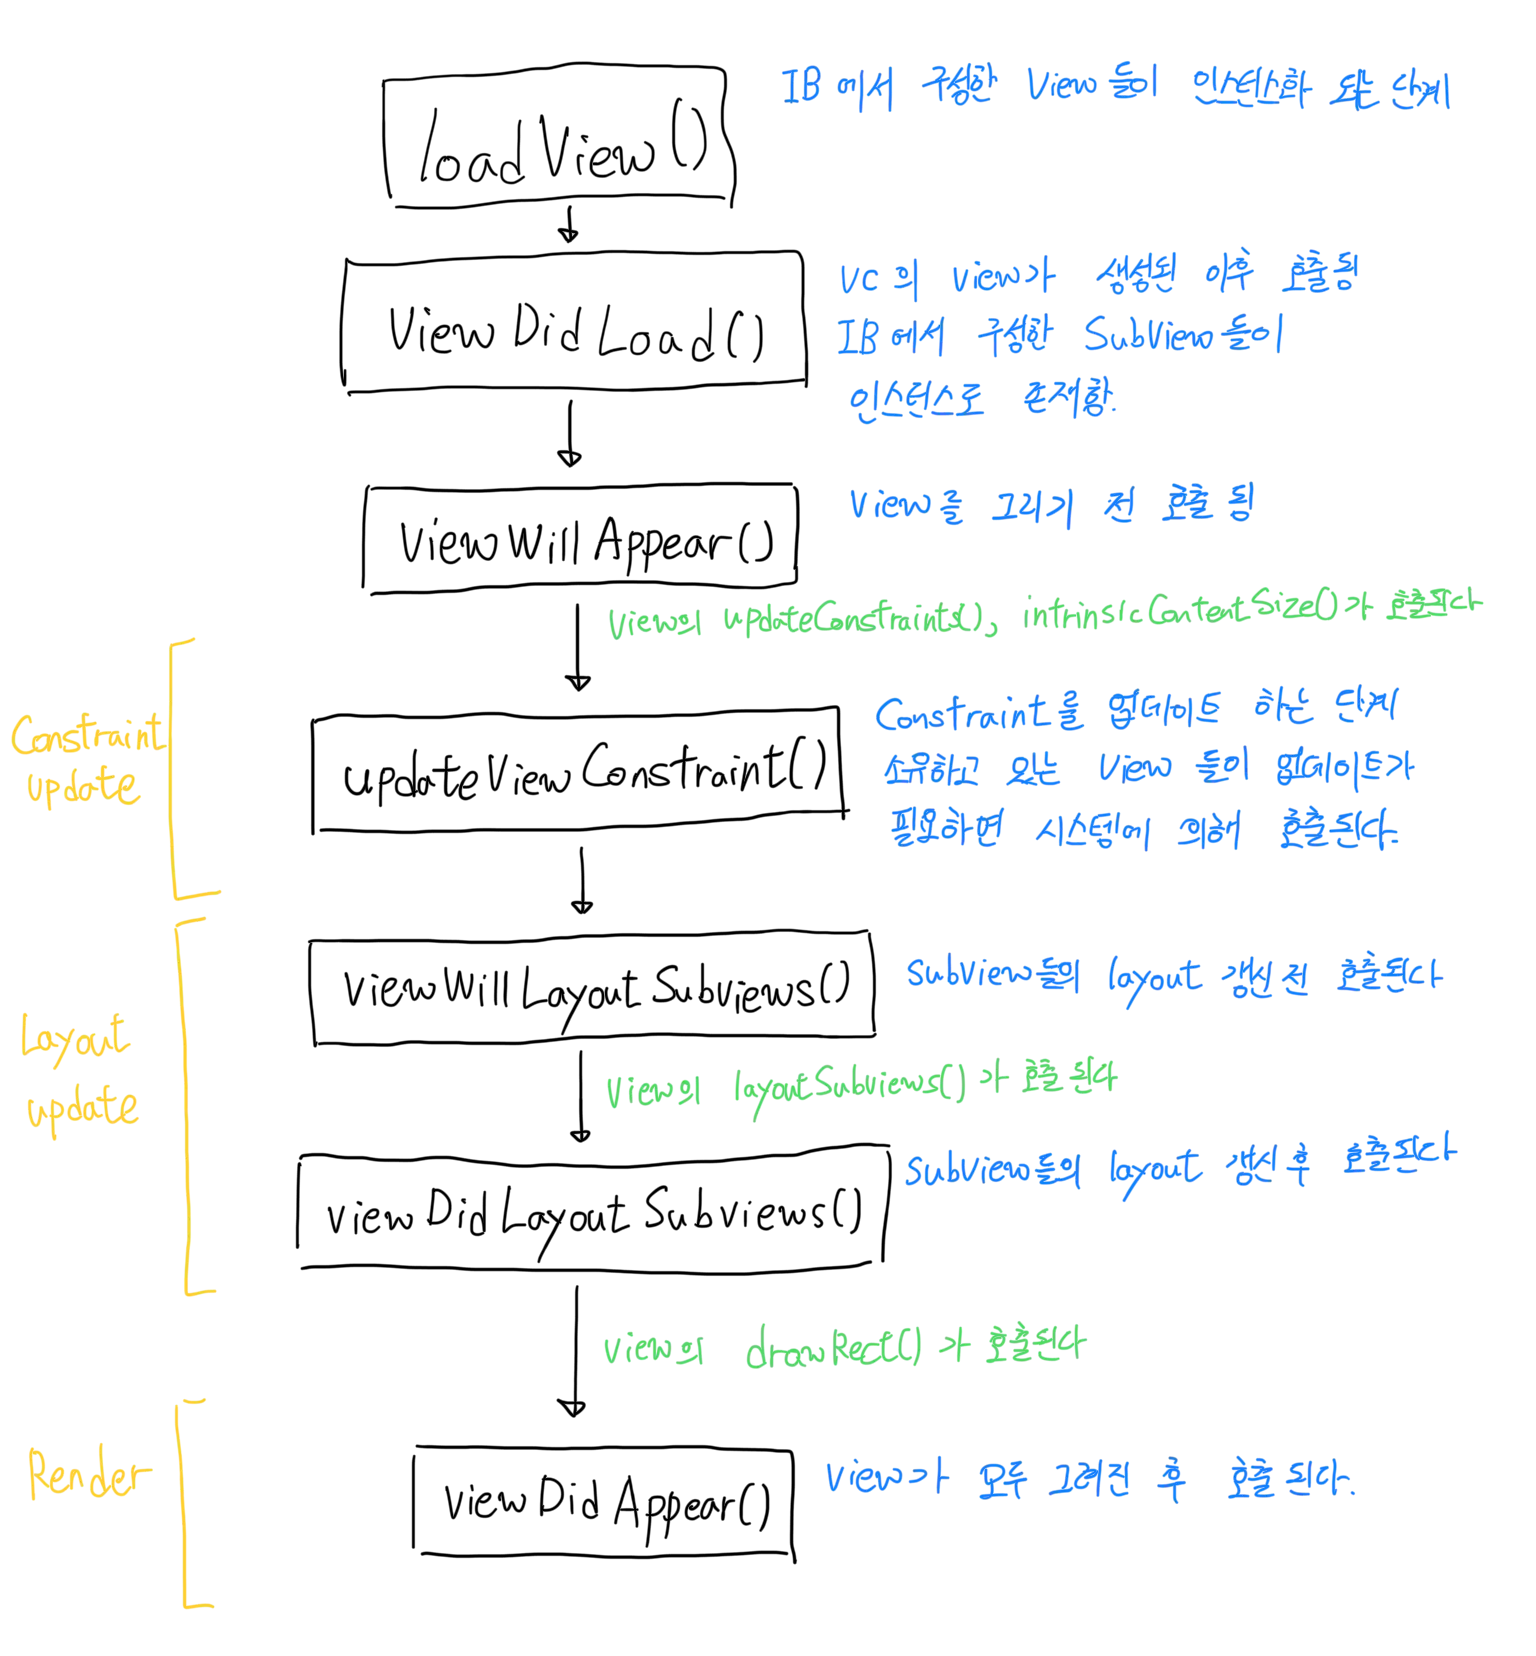 loadView()
IB에서 구성한 View들이 인스턴스화 되는 단계
ViewDidLoad()
VC의 View가 생성된 이후 호출됨
IB에서 구성한 SubView들이
인스턴스로 존재함.
ViewWillAppear()
View를 그리기 전 호출 됨
View의 updateConstraints(), intrinsicContentSize()가 호출된다
Constraint
update
updateViewConstraint()
Constraint를 업데이트 하는 단계
소유하고 있는 View 들이 업데이트가
필요하면 시스템에 의해 호출된다.
Layout
update
viewWillLayoutSubviews()
SubView들의 layout 갱신 전 호출된다
View의 layoutSubviews()가 호출된다
viewDidLayoutSubviews()
SubView들의 layout 갱신 후 호출된다
View의 drawRect()가 호출된다
Render
viewDidAppear()
View가 모두 그려진 후 호출된다.